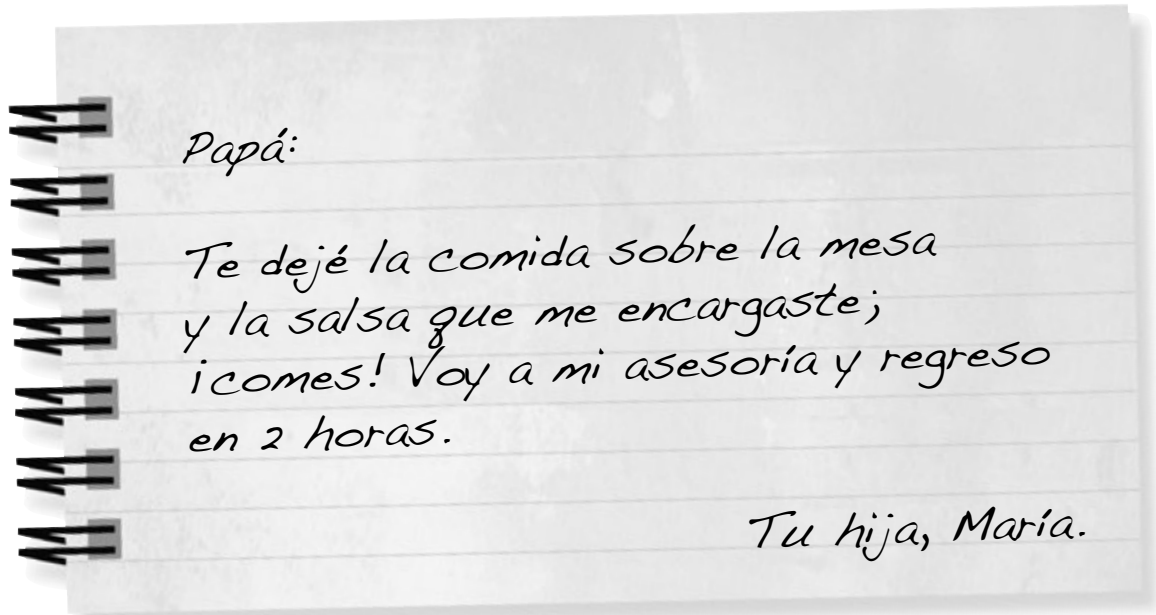 Papá:
Te dejé la comida sobre la mesa
y la salsa que me encargaste;
¡comes! Voy a mi asesoría y regreso
en 2 horas.
Tu hija, María.